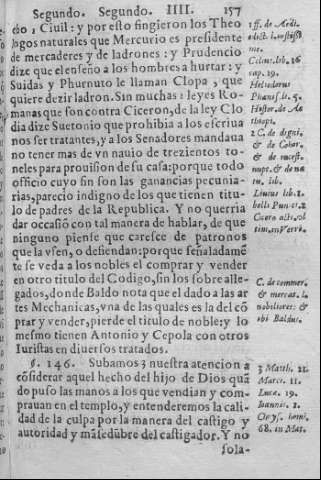 Segundo. Segundo. IIII. 157
co, Ciuil: y por esto fingieron los Theo
logos naturales que Mercurio es presidente
de mercaderes y de ladrones: y Prudencio
dize que elenseño a los hombres a hurtar: y
Suidas y Phurnuto le llaman Clopa, que
quiere dezir ladron. Sin muchas leyes Ro-
manas que son contra Ciceron, de la ley Clo
dia dize Suetonio que prohibia a los escriua
nos ser tratantes, y a los Senadores mandaua
no tener mas de vn nauio de trezientos to-
neles para prouision de su casa: porque todo
officio cuyo fin son las ganancias pecunia-
rias, parecio indigno de los que tienen titu-
lo de padres de la Republica. Y no querria
dar occasiõ con tal manera de hablar, de que
ninguno piense que caresce de patronos
que la vsen, o defiendan: porque señaladamē
te se veda a los nobles el comprar y vender
en otro titulo del Codigo, sin los sobre alle-
gados, donde Baldo nota que el dado a las ar
tes Mechanicas, vna de las quales es la del cõ
prar y vender, pierde el titulo de noble: y lo
mesmo tienen Antonio y Cepola con otros
Iuristas en diuersos tratados.
§. 146. Subamos a nuestra atencion a
cõsiderar aquel hecho del hijo de Dios quã
do puso las manos a los que vendian y com-
prauan en el templo, y entenderemos la cali-
dad de la culpa por la manera del castigo y
autoridad y mãsedũbre del castigador. Y no
sola-
1 ff. de Aedi.
me.
Celius. lib.
cap. 19.
Heliodorus
lib. 5.
Histor. de Ae
thiopi.
2 C. de digni.
& de Cohor.
& de
nupt. & de na
tu. lib.
Liuius lib. 2.
belli Punici. 2
Cicero
sim. in Verrē.
C. de commer.
& mercat. l.
nobiliores: &
ibi Baldus.
3 Matth. 21.
Marci. 11.
Lucæ. 19.
Ioannis. 2.
homi.
68. in Mat.